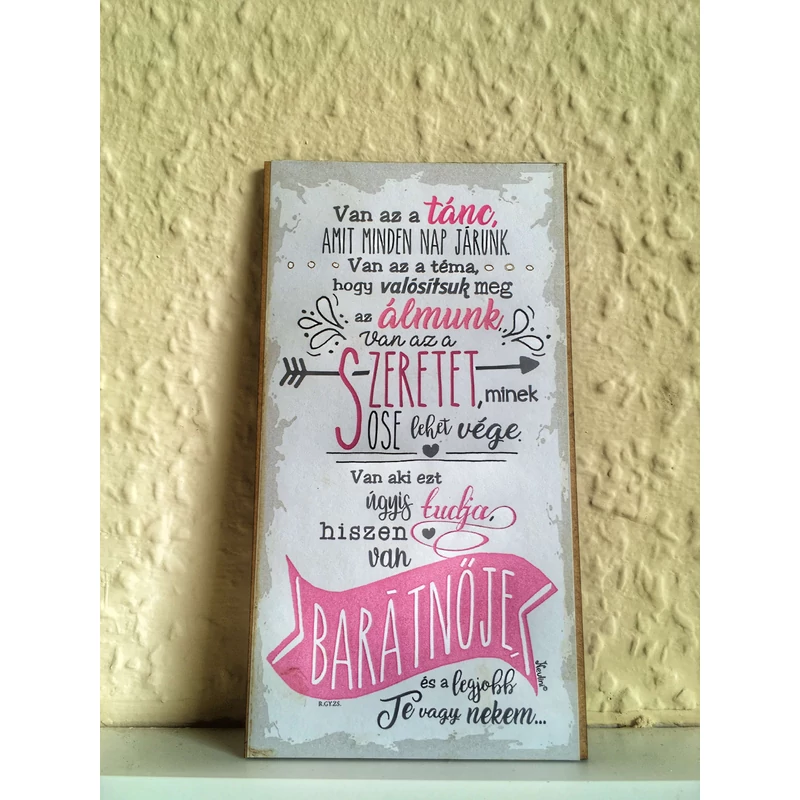 Van az a tánc,
AMIT MINDEN NAP JÁRUNK.
Van az a téma,
hogy valósítsuk meg
az álmunk,
Van az a
SZERETET, minek
SOSE lehet vége.
Van aki ezt
úgyis tudja,
hiszen
van
BARÁTNŐJE,
és a legjobb
R.GY.ZS.
Te vagy nekem...